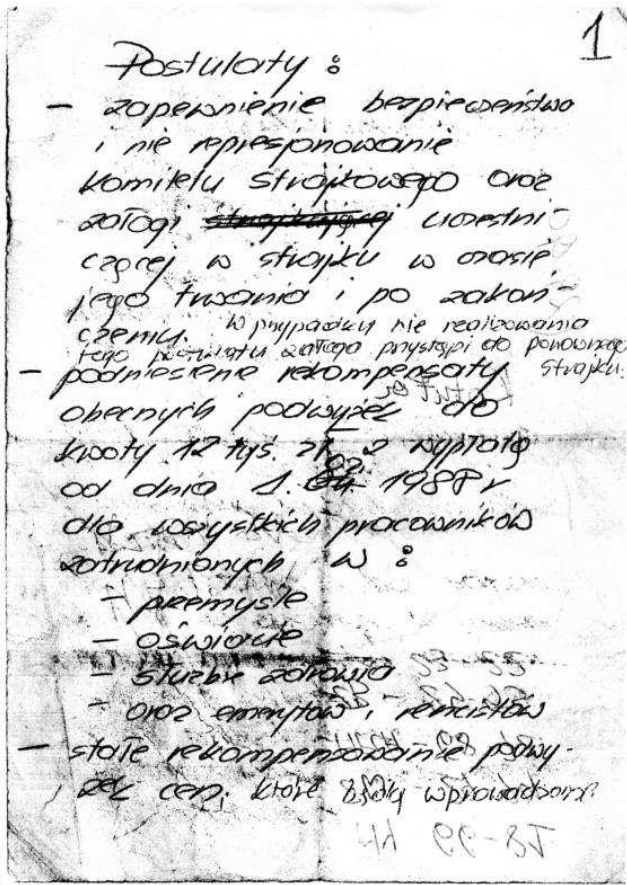 1
Postulaty :
- zapewnienie bezpieczeństwa
i nie represjonowanie
Komitetu Strajkowego oraz
załogi strajkującej uczestni-
czącej w strajku w czasie
jego trwania i po zakoń-
czeniu. W przypadku nie realizowania
tego postulatu załoga przystąpi do ponownego
strajku.
- podniesienie rekompensaty
obecnych podwyżek do
kwoty 12 tyś. zł z wypłatą
od dnia 1. 02 1988 r
dla wszystkich pracowników
zatrudnionych w :
- przemyśle
- oświacie
- służbie zdrowia
- oraz emerytów i rencistów
- stałe rekompensowanie podwy-
żek cen, które będą wprowadzane.